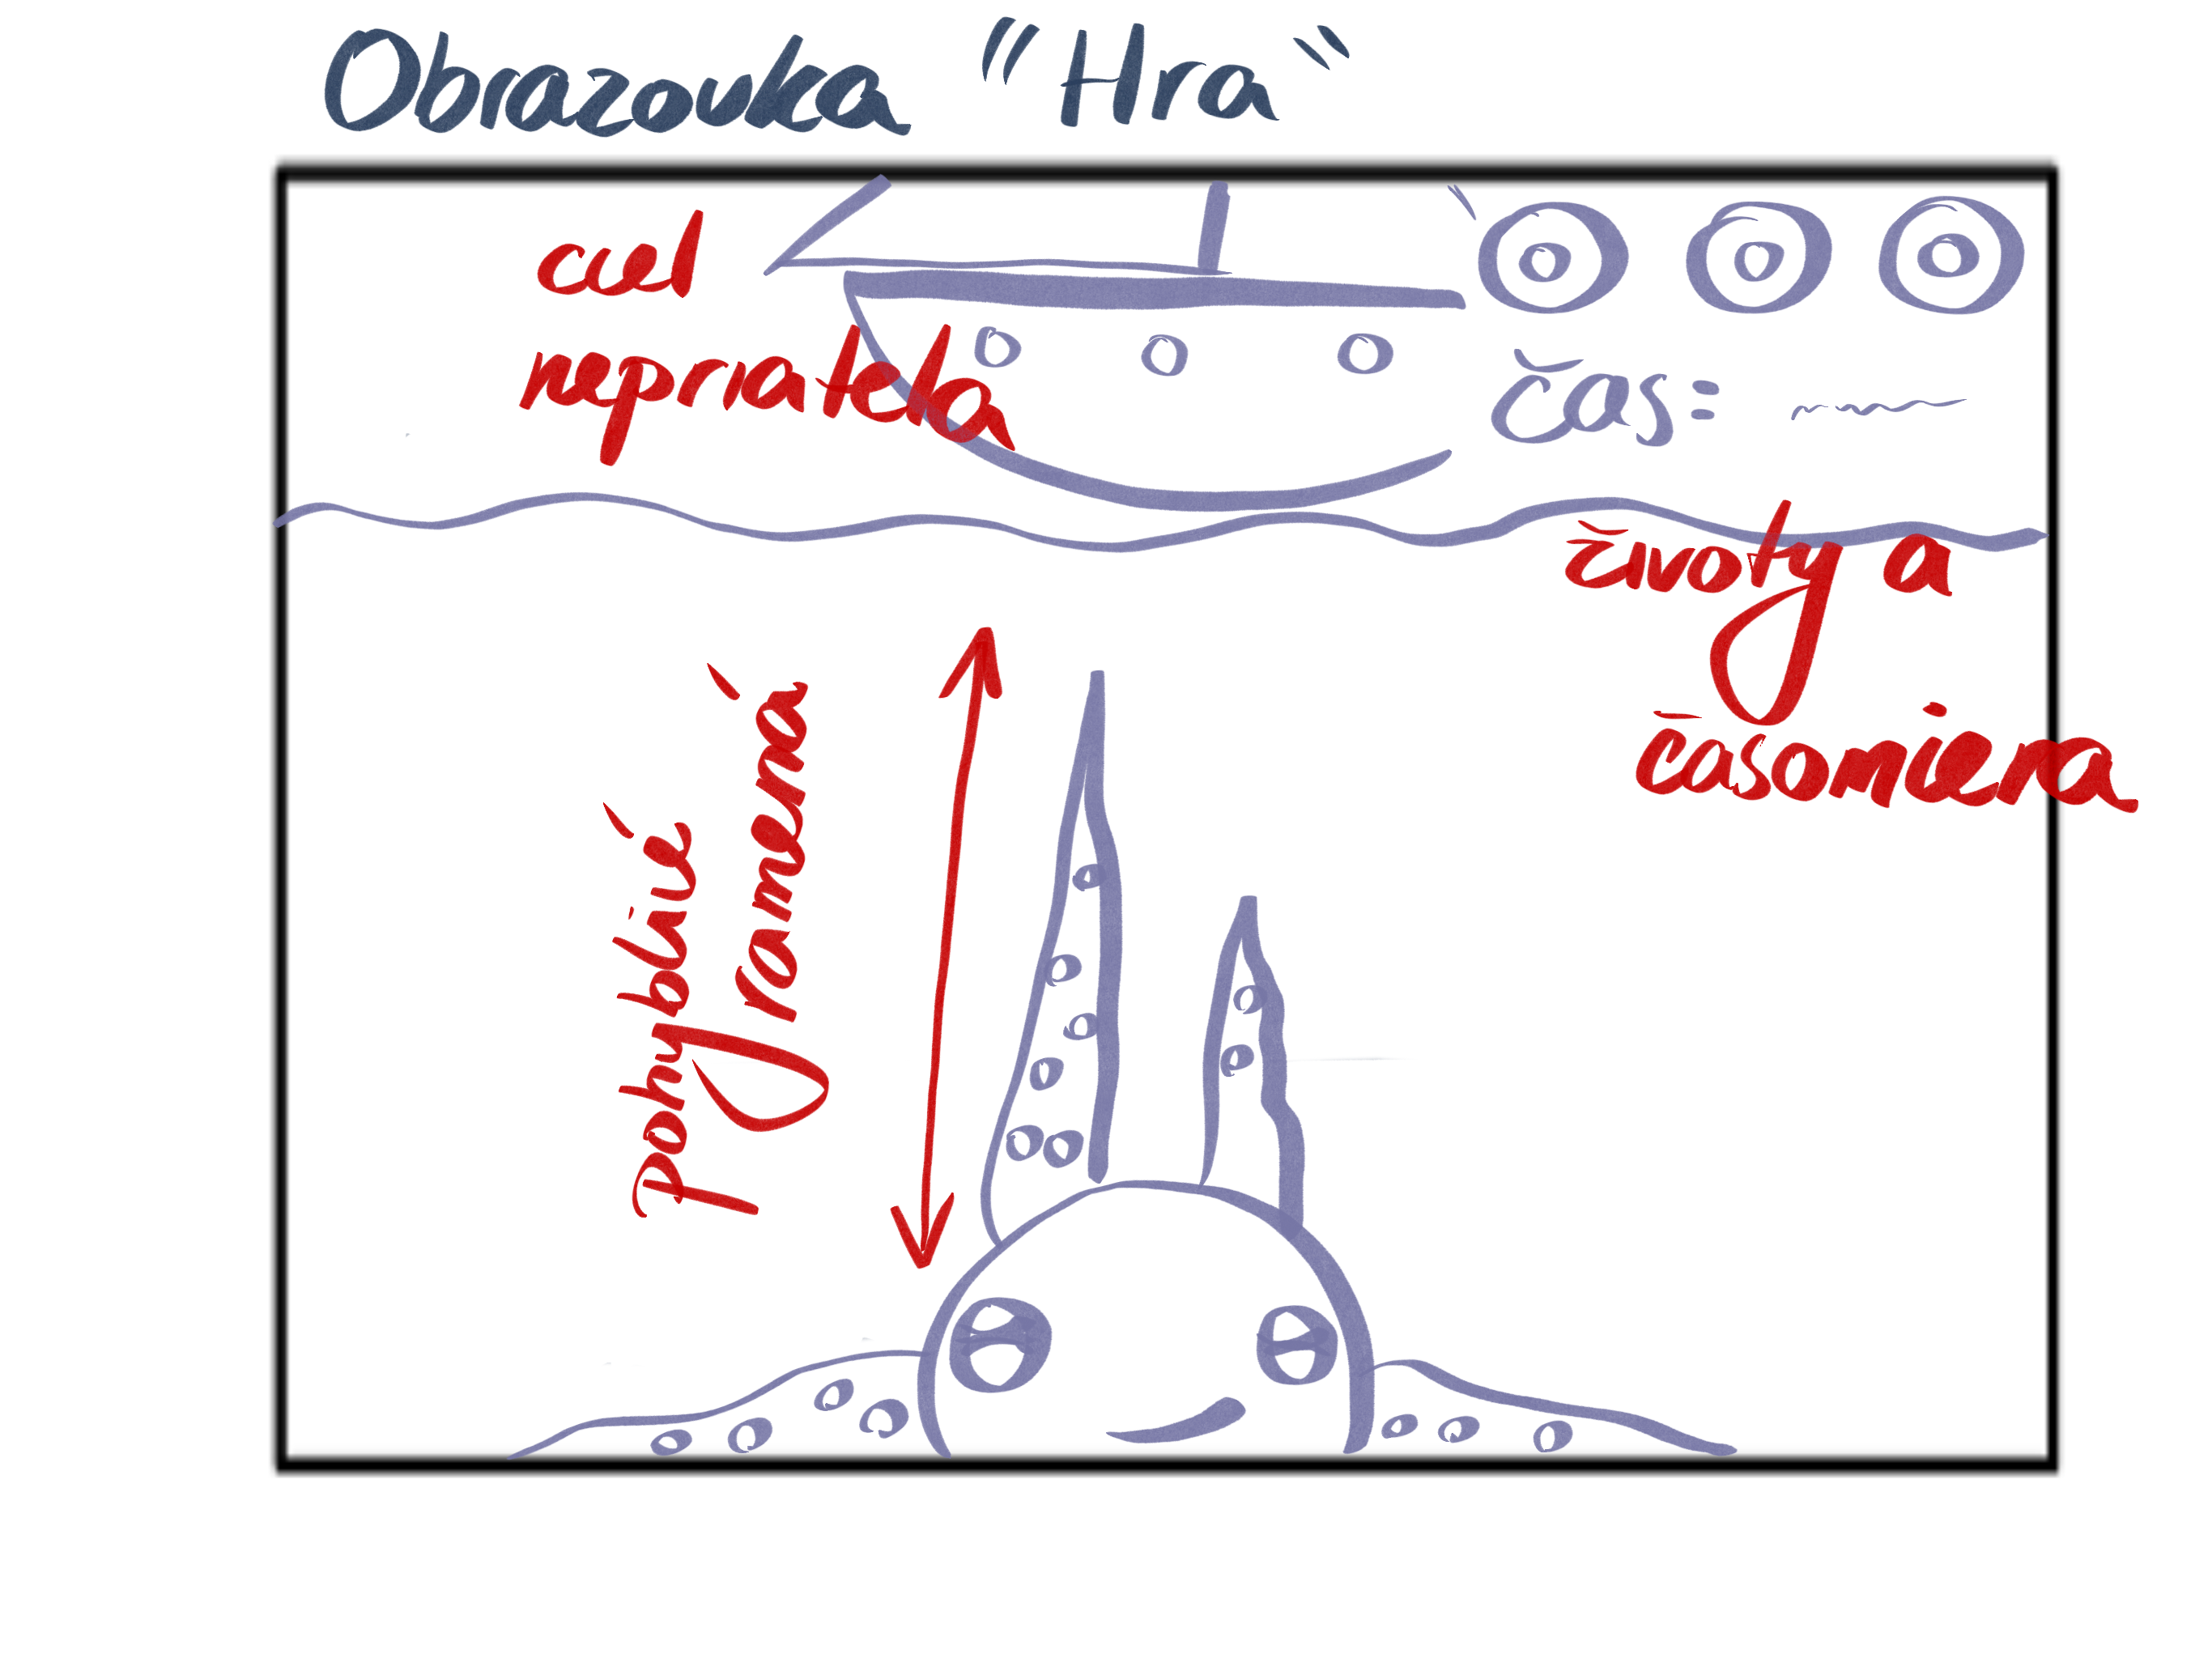 Obrazovka "Hra"
ciel
nepriatela
čas:
životy a
časomiera
pohyblivé
ramená